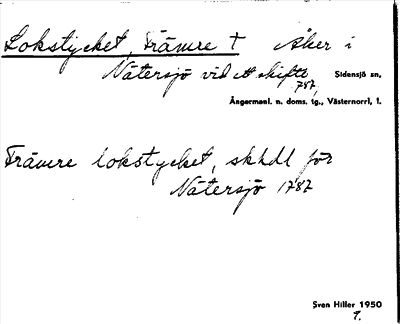 Lokstycket, Främre † Åker i
Nätersjö vid ett skifte
1787,
Sidensjö sn,
Ångermanl. n. doms. tg., Västernorrl. l.
Främre lokstycket, skhdl för
Nätersjö 1787
Sven Hiller 1950
9.